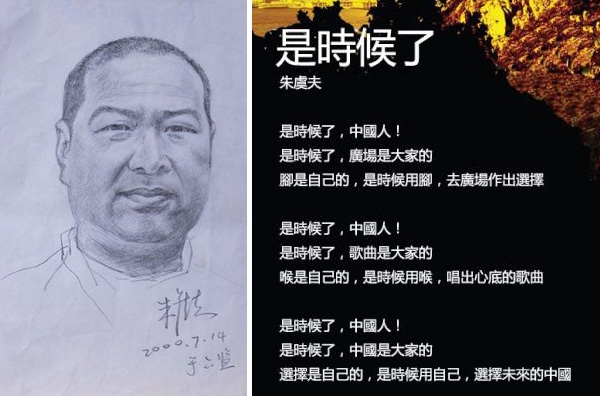 2000.7.14
是時候了
朱虞夫
是時候了，中國人！
是時候了，廣場是大家的
腳是自己的，是時候用腳，去廣場作出選擇
是時候了，中國人！
是時候了，歌曲是大家的
喉是自己的，是時候用喉，唱出心底的歌曲
是時候了，中國人！
是時候了，中國是大家的
選擇是自己的，是時候用自己，選擇未來的中國